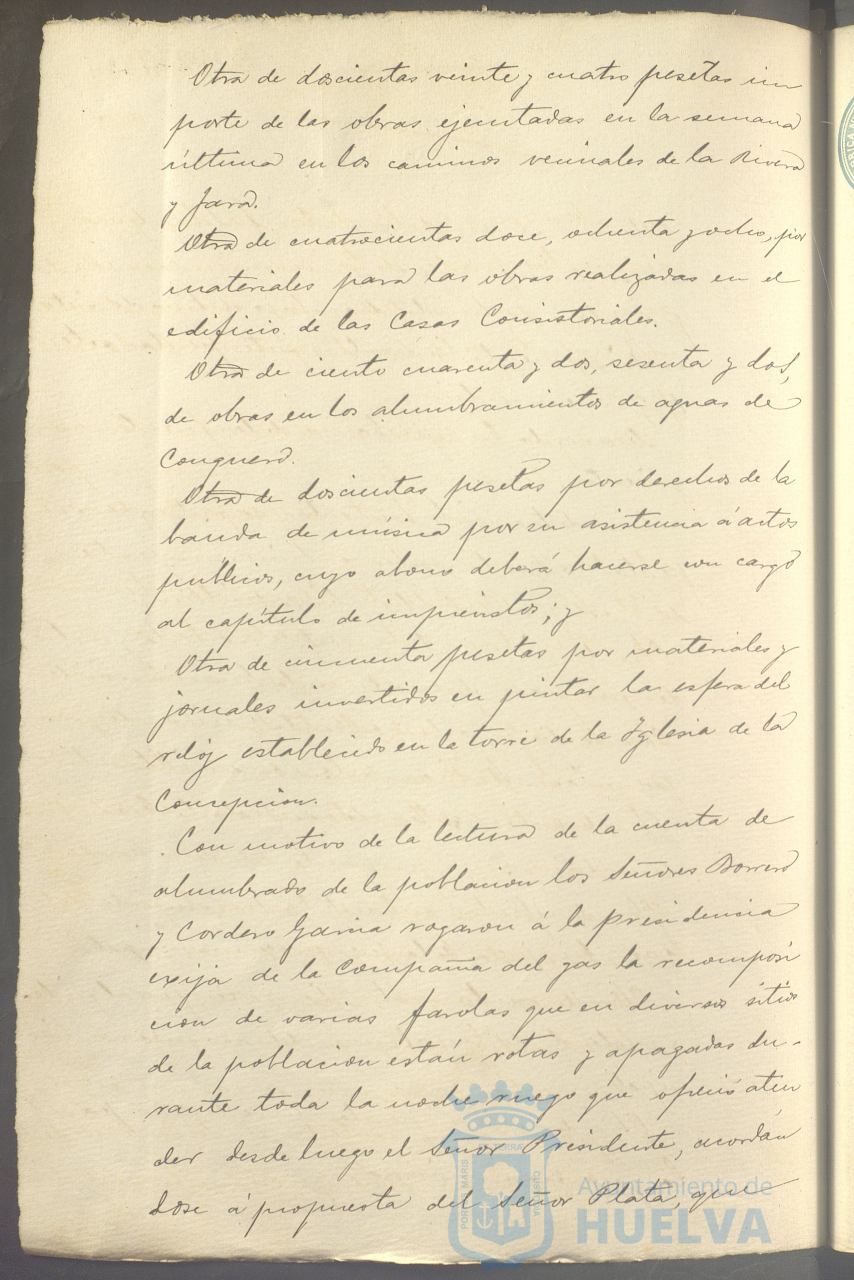 Otra de doscientas veinte y cuatro pesetas im
porte de las obras ejecutadas en la semana
última en los caminos vecinales de la Rivera
y Jara.
Otra de cuatrocientas doce, ochenta y ocho, por
materiales para las obras realizadas en el
edificio de las Casas Consistoriales.
Otra de ciento cuarenta y dos, sesenta y dos,
de obras en los alumbramientos de aguas de
Conquero.
Otra de doscientas pesetas por derechos de la
banda de música por su asistencia á actos
publicos, cuyo abono deberá hacerse con cargo
al capítulo de imprevistos; y
Otra de cincuenta pesetas por materiales y
jornales invertidos en pintar la esfera del
reloj establecido en la torre de la Iglesia de la
Concepcion.
Con motivo de la lectura de la cuenta de
alumbrado de la poblacion los Señores Borrero
y Cordero Garcia rogaron á la presidencia
exija de la Compañia del gas la recomposi
cion de varias farolas que en diversos sitios
de la poblacion están rotas y apagadas du-
rante toda la noche ruego que ofreció aten
der desde luego el Señor Presidente, acordán
dose á propuesta del Señor Plata, que
Ayuntamiento de
HUELVA